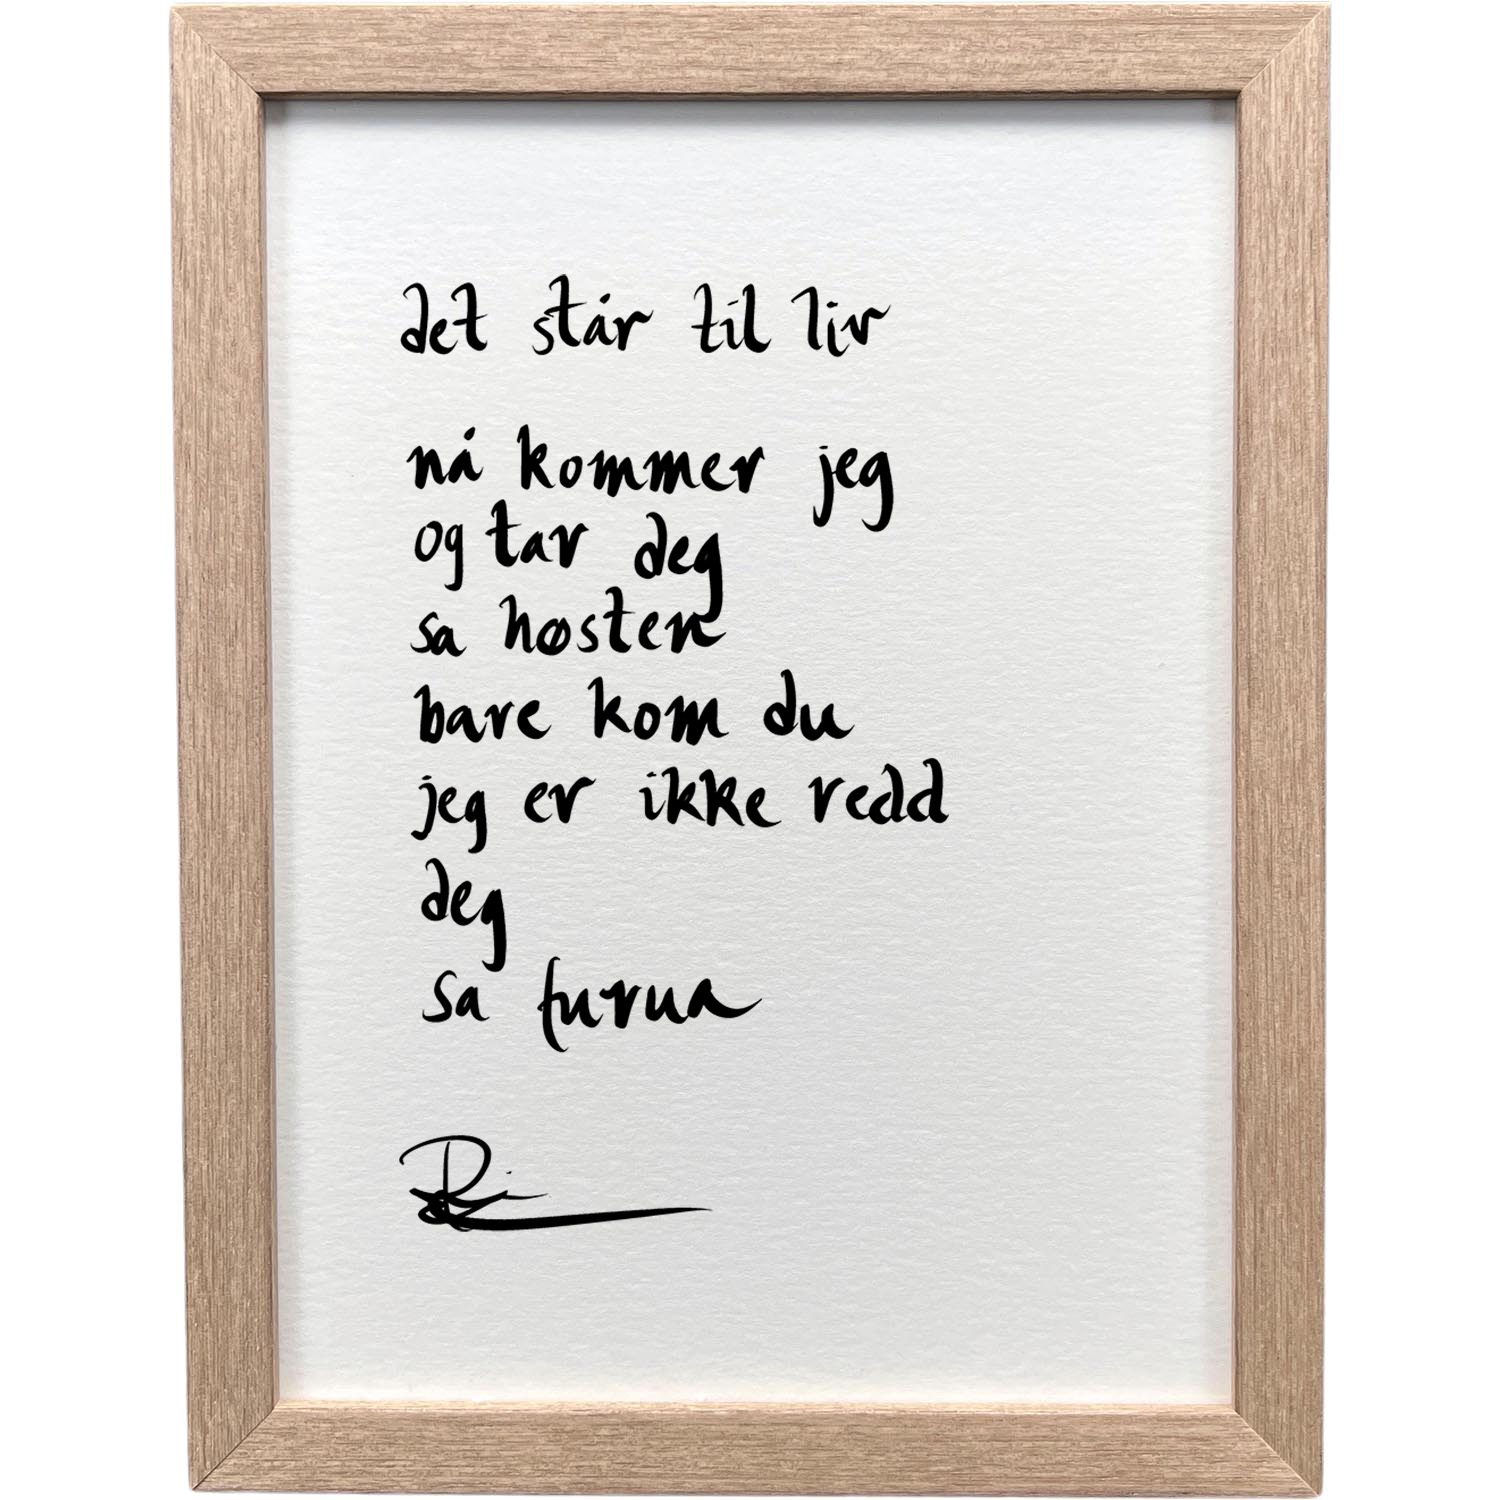 det står til liv
nå kommer jeg
og tar deg
sa høsten
bare kom du
jeg er ikke redd
deg
sa furua